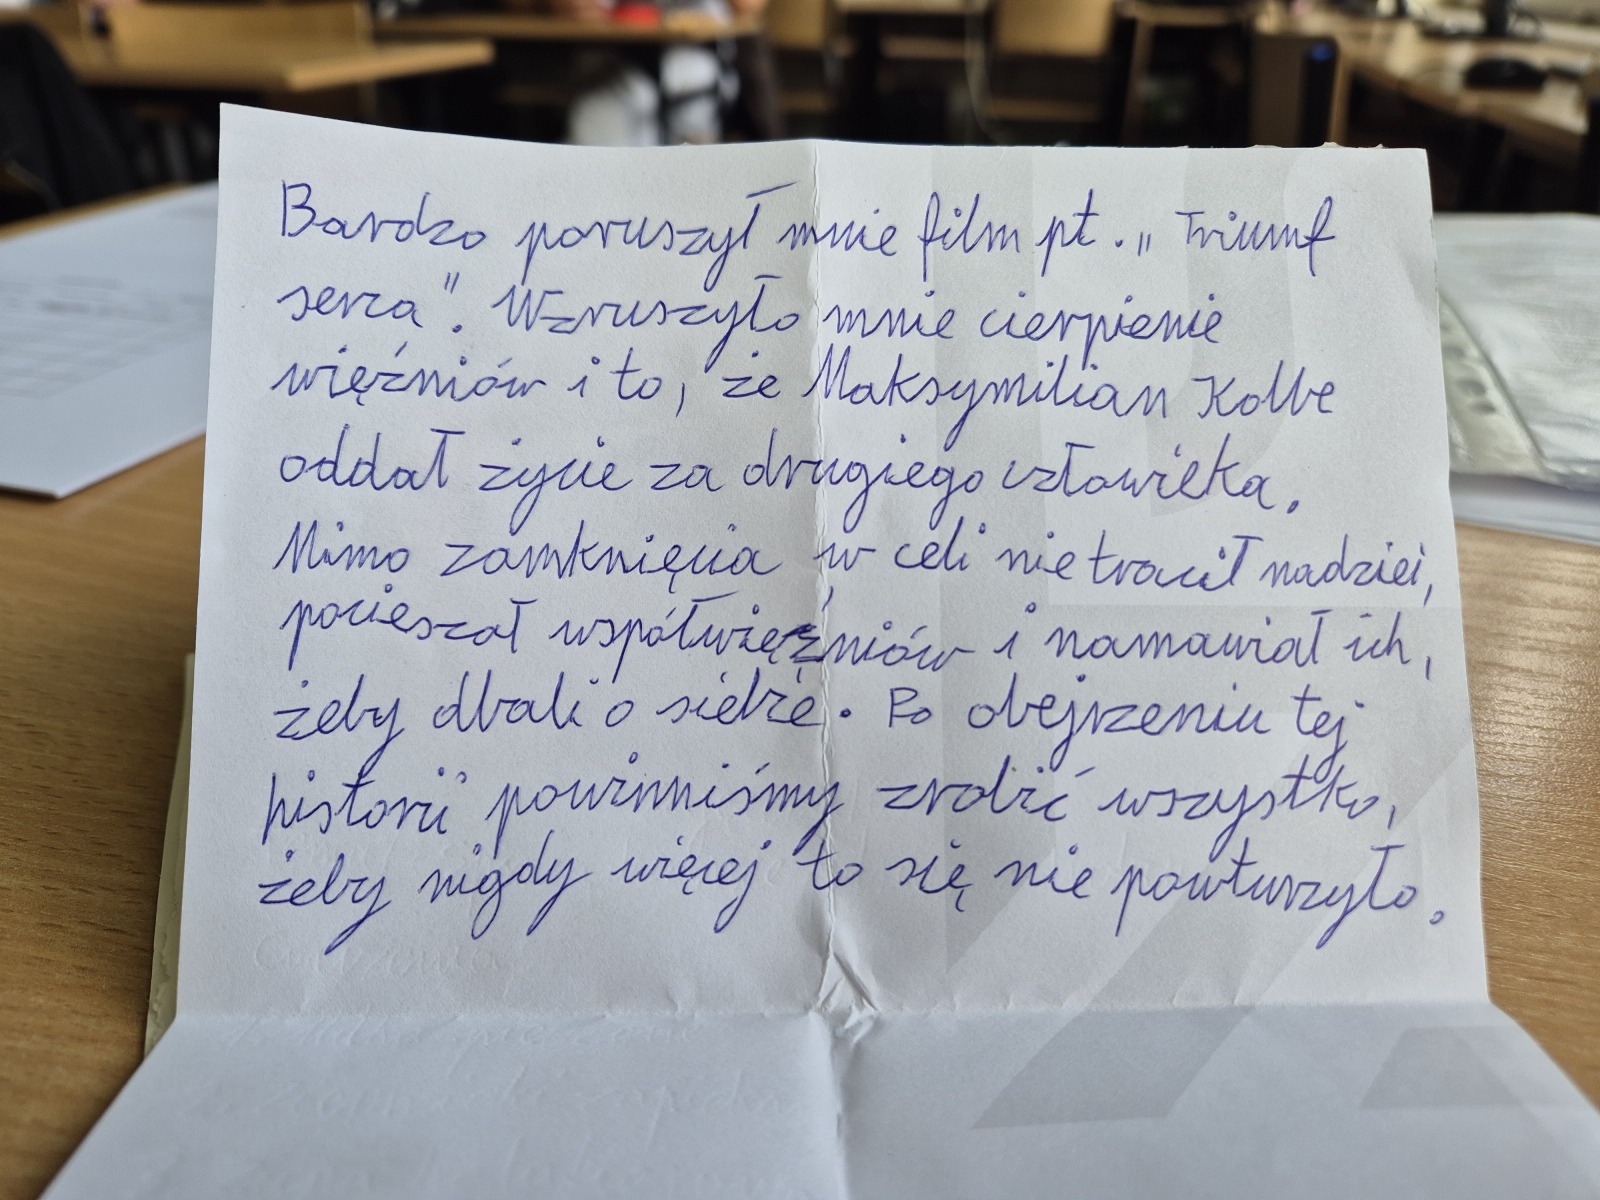 Bardzo poruszył mnie film pt. „Triumf
serca". Wzruszyło mnie cierpienie
więźniów i to, że Maksymilian Kolbe
oddał życie za drugiego człowieka.
Mimo zamknięcia w celi nie tracił nadziei,
pocieszał współwięźniów i namawiał ich,
żeby dbali o siebie. Po obejrzeniu tej
historii powinniśmy zrobić wszystko,
żeby nigdy więcej to się nie powturzyło.